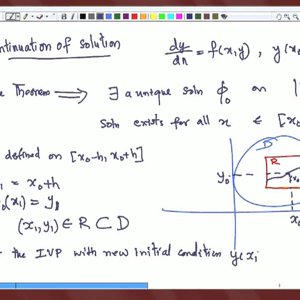 ntinuation of solution
dy/dx = f(x,y) , y(x₀
Theorem ⟹ ∃ a unique soln ϕ₀ on |
Soln exists for all x ∈ [x₀
defined on [x₀-h, x₀+h]
₁ = x₀+h
₀(x₁) = y₁
(x₁,y₁) ∈ R ⊂ D
the IVP with new initial condition y(x₁
D
R
y₀
x₀